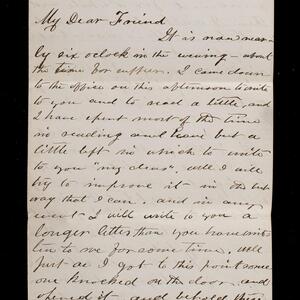 My Dear Friend
It is now near-
ly six oclock in the evening - about
the time for supper. I came down
to the office on this afternoon to write
to you and to read a little, and
I have spent most of the time
in reading and have but a
little left in which to write
to you "my dear". well I will
try to improve it in the best
way that I can. and in any
event I will write to you a
longer letter than you have writ
ten to me for some time. well
just as I got to this point some
one knocked on the door, and
opened it and behold there